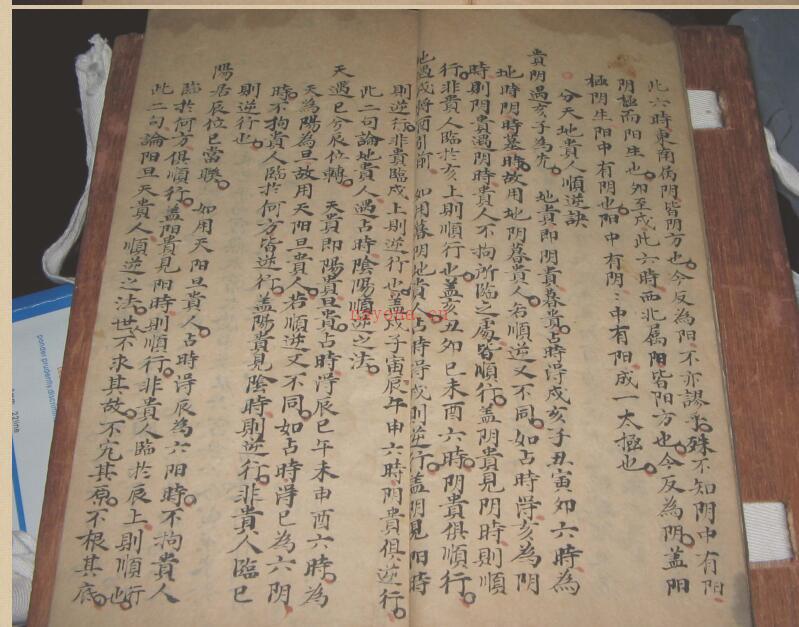 此六時東南偽阴皆阴方也今反為阳不亦謬乎殊不知阴中有阳
阴極而阳生也如至戌此六時西北属阳皆阳方也今反為阴盖阳
極阴生阳中有阴也阳中有阴：中有阳成一太極也
分天地貴人順逆訣
貴阴遇亥子為先 地貴即阴貴暮貴占時得戌亥子丑寅卯六時為
地時阴時墓時故用地阴暮貴人若順逆又不同如占時得亥為阴
時則阴貴遇阴時貴人不拘所臨之處皆順行盖阴貴見阴時則順
行非貴人臨於亥上則順行也盖亥丑卯巳未酉六時阴貴俱順行
地遇戌將個引前 如用暮阴地貴人占時得戌則逆行盖阴見阳時
則逆行非貴臨戌上則逆行也盖戌子寅辰午申六時阴貴俱逆行
此二句論地貴人遇占時陰陽順逆之法
天遇巳兮辰位轉 天貴即陽貴旦貴占時得辰巳午未申酉六時為
天為陽為旦故用天阳旦貴人若順逆又不同如占時得巳為六阴
時不拘貴人臨於何方皆逆行盖陽貴見陰時則逆行非貴人臨巳
則逆行也
陽居辰位已當聯 如用天阳旦貴人占時得辰為六阳時不拘貴人
臨於何方俱順行盖阳貴見阳時則順行非貴人臨於辰上則順行
此二句論阳旦天貴人順逆之法世不求其故不究其原不根其底也
ponder prudently discrimin
22line